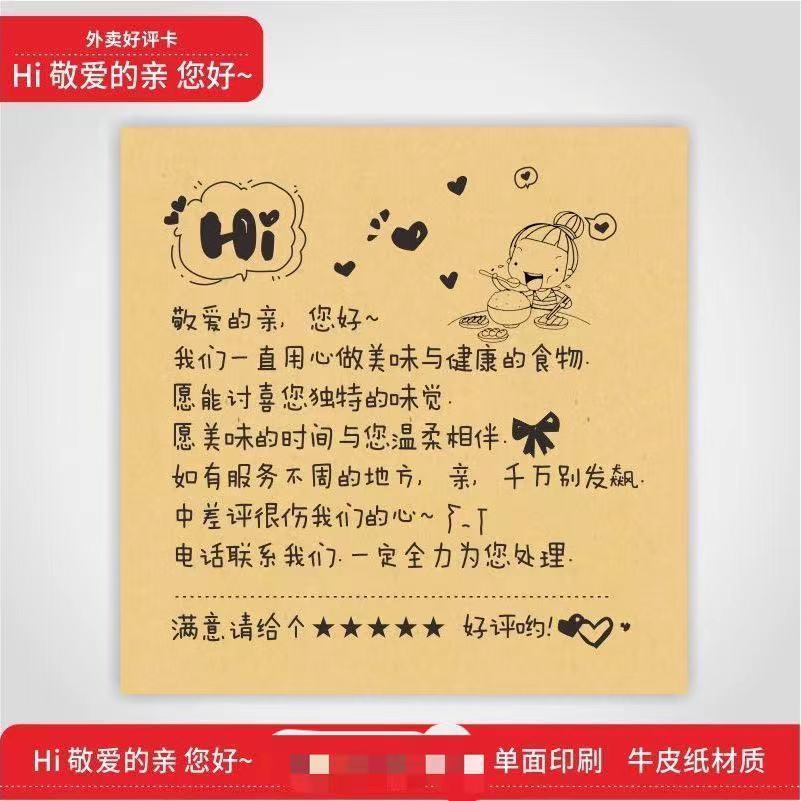 外卖好评卡
Hi 敬爱的亲 您好~
Hi
敬爱的亲, 您好~
我们一直用心做美味与健康的食物.
愿能讨喜您独特的味觉.
愿美味的时间与您温柔相伴.
如有服务不周的地方, 亲, 千万别发飙.
中差评很伤我们的心~ T_T
电话联系我们.一定全力为您处理.
满意请给个★★★★★ 好评哟!
Hi 敬爱的亲 您好~ 单面印刷 牛皮纸材质